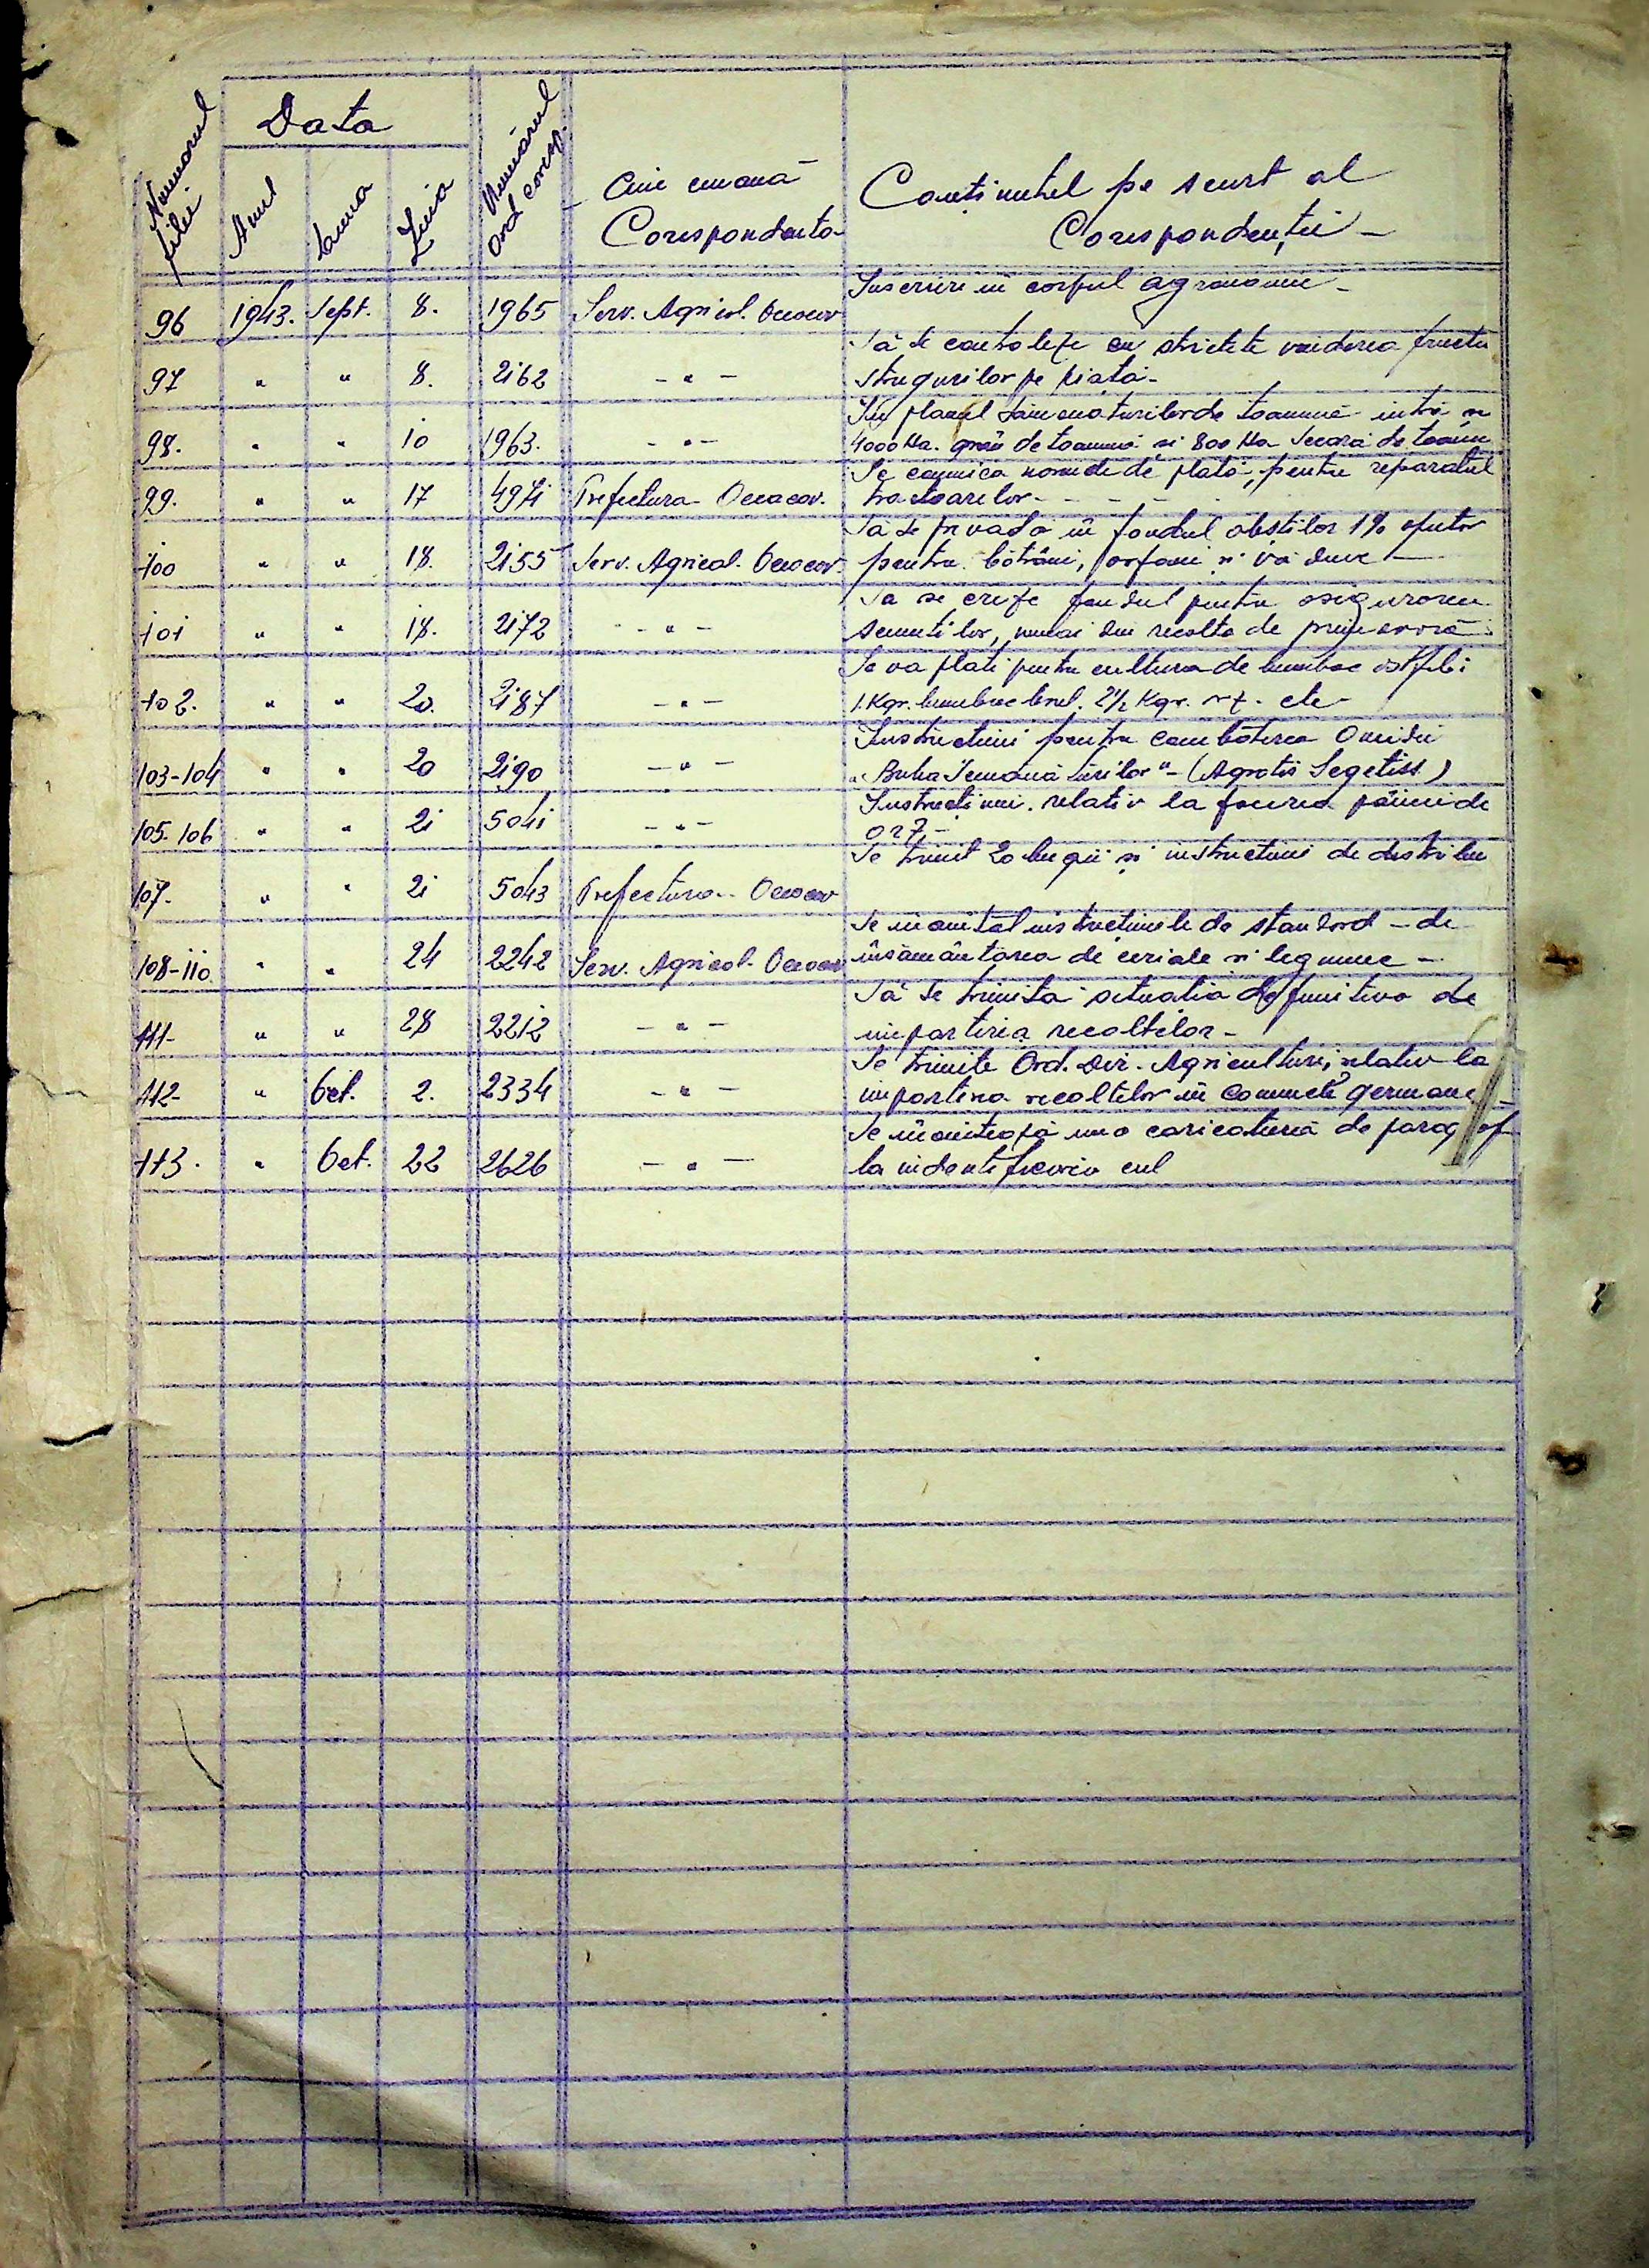 Data
Numarul filei
Anul
Luna
Ziua
Numărul ord coresp.
Cine emană
Corespondenta
Conținutul pe scurt al
Corespondenții -
96 1943. Sept. 8. 1965 Serv. Agricol. Oceacov Inscriere in corpul agronomic -
97 " " 8. 2162 - " - Să se controleze cu strictete vinderea fructe
strugurilor pe piață -
98. " " 10 1963. - " - In planul sămănaturilor de toamnă intră si
4000 Ha. grâu de toamnă si 800 Ha Secară de toamn
99. " " 17 4971 Prefectura Oceacov. Se comunica normele de plată, pentru reparatul
tractoarelor - - - -
100 " " 18. 2155 Serv. Agricol. Oceacov Să se prevadă in fondul obstilor 1%
pentru bătrâni, orfani si văduve -
101 " " 18. 2172 - " - Sa se creeze fondul pentru asigurarea
semintilor, numai din recolta de primavară
102. " " 20. 2187 - " - Se va plati pentru cultura de bumbac astfel:
1. Kgr. bumbac brut. 2 1/2 Kgr. etc -
103-104 " " 20 2190 - " - Instructiuni pentru combaterea Omidii
"Buha Semănăturilor" - (Agrotis Segetiss)
105. 106 " " 21 5041 - " - Instrucțiuni. relativ la facerea pâinii de
orz, -
107. " " 21 5043 Prefectura - Oceacov Se trimit 20 bugii si instructiuni de distribu
108-110. " " 24 2242 Serv. Agricol. Oceacov Se instructiunile de standard - de
însământarea de ceriale si legume -
111- " " 28 2212 - " - Să se trimita situatia definitiva de
impartirea recoltelor -
112- " Oct. 2. 2334 - " - Se trimite Ord. Dir. Agriculturii, relativ la
impartirea recoltelor in comunele germane -
113. " Oct. 22 2626 - " - Se de
la